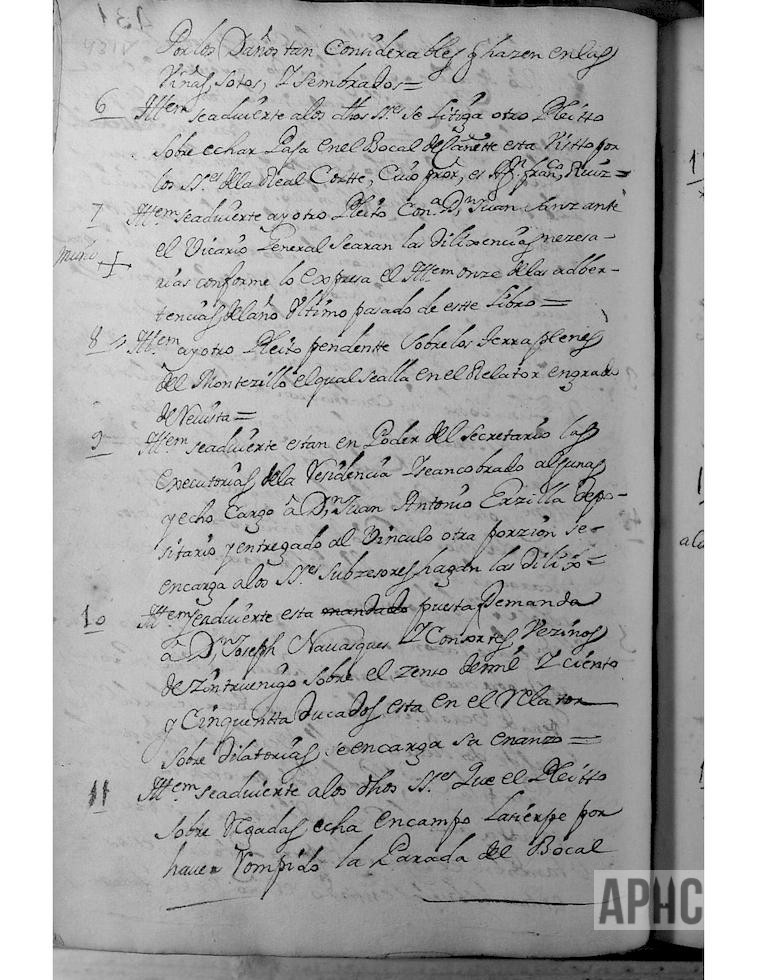 431
Por los Daños tan Considerables q̃ hazen en las
Viñas, sotos, y sembrados=
6 Ittem se aduierte a los dhos SSes se litiga otro Pleitto
sobre echar Pasa en el Bocal de Cañette esta Visto por
los SSes de la Real Cortte, Cuio pror, es franco Ruiz=
7 Ittem se aduierte ay otro Pleito Con D.n Juan Sanz ante
el Vicario General se aran las dilixencias nezesa-
rias conforme lo expresa el Ittem onze de las adber-
tencias del año Ultimo pasado de estte Libro=
8 Ittem ay otro Pleito pendentte sobre los terraplenes
del Montezillo el qual se alla en el Relator en grado
de Reuista=
9 Ittem se aduierte estan en Poder del Secretario las
executorias de la Residencia y se an cobrado algunas
y echo Cargo â D.n Juan Antonio Erzilla depo-
sitario y entregado al Vinculo otra porzion se
encarga a los SSes subzesores hagan las dilix=
10 Ittem se aduierte esta mandado puesta Demanda
â D.n Joseph Nauasques y Consortes Vezinos
de Zintruenigo sobre el zenso de mil y ciento
y Cinquentta ducados esta en el Relator
sobre dilatorias, se encarga su
11 Ittem se aduierte a los dhos SSes que el Pleitto
sobre echa en campo Latierpe por
hauer Rompido la Parada del Bocal
APHC